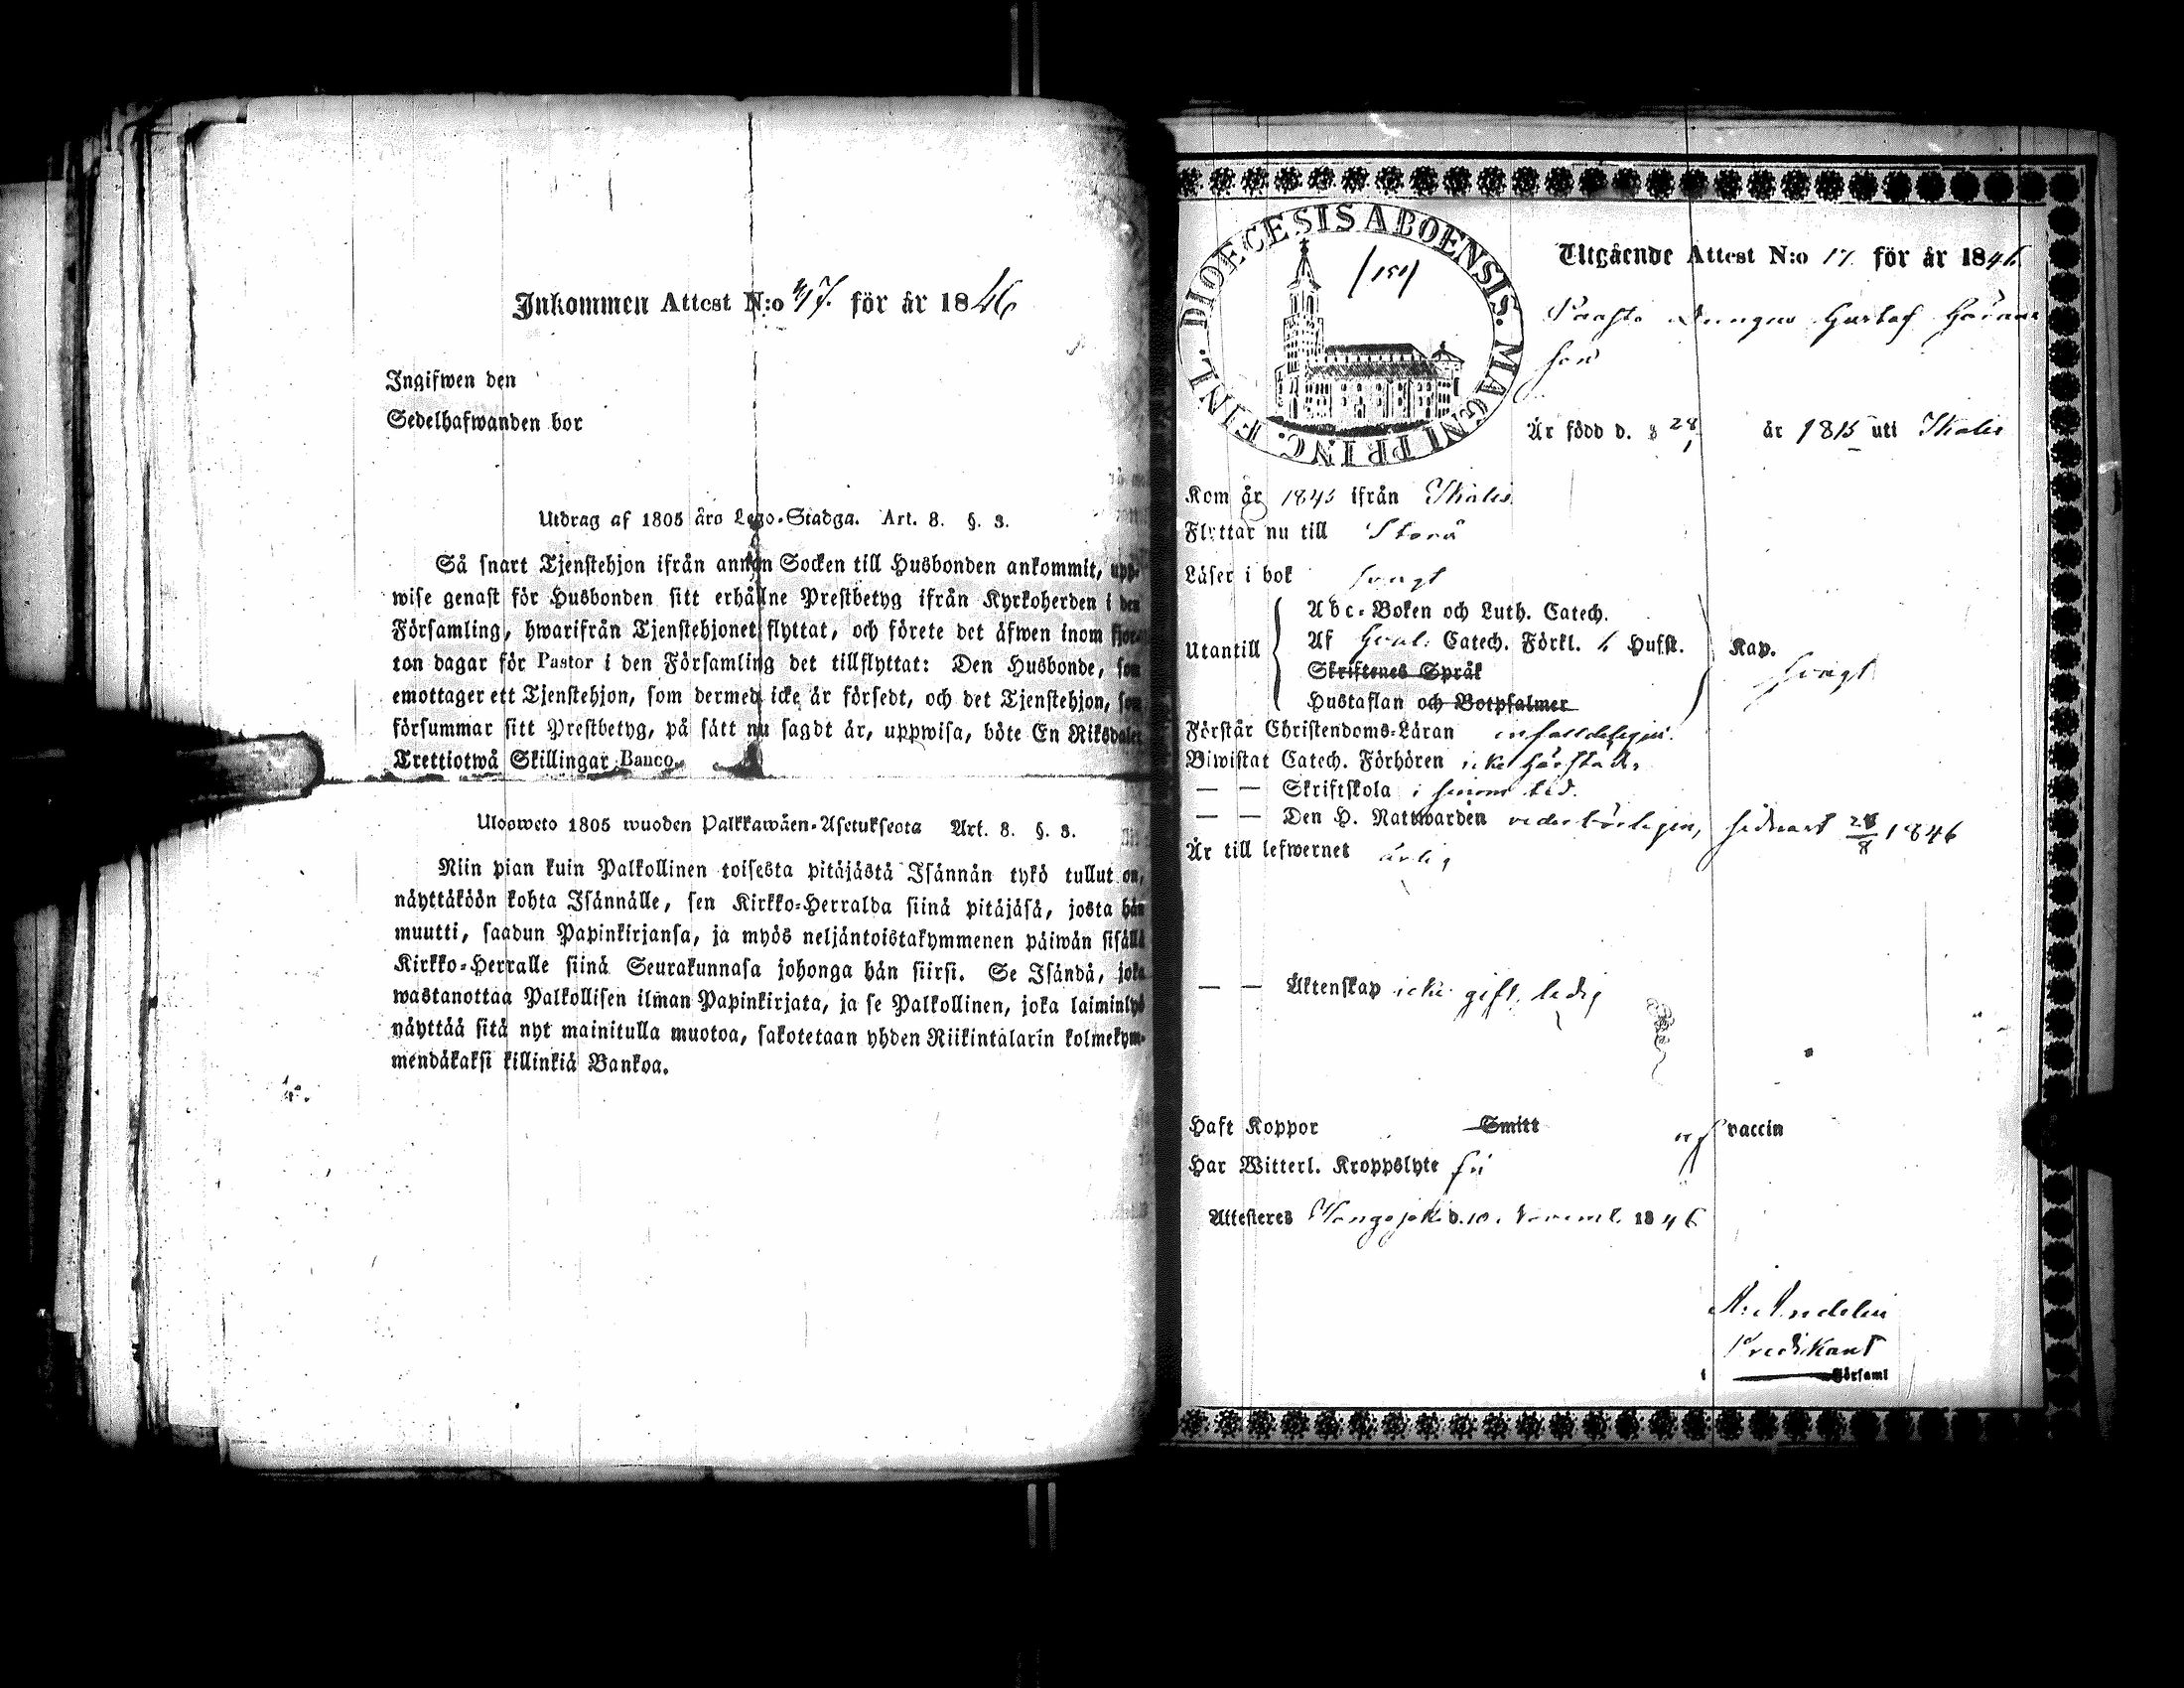 Inkommen Attest N:o 47. för år 1846
Ingifwen den
Sedelhafwanden bor
Utdrag af 1805 års Lego-Stadga. Art. 8. §. 3.
Så snart Tjenstehjon ifrån annan Socken till Husbonden ankommit, upp-
wise genast för Husbonden sitt erhållne Prestbetyg ifrån Kyrkoherden i den
Församling, hwarifrån Tjenstehjonet flyttat, och förete det äfwen inom fjor-
ton dagar för Pastor i den Församling det tillflyttat: Den Husbonde, som
emottager ett Tjenstehjon, som dermed icke är försedt, och det Tjenstehjon, som
försummar sitt Prestbetyg, på sätt nu sagdt är, uppwisa, böte En Riksdaler
Trettiotwå Skillingar Banco.
Ulosweto 1805 wuoden Palkkawäen-Asetuksesta Art. 8. §. 3.
Niin pian kuin Palkollinen toisesta pitäjästä Isännän tykö tullut on,
näyttäköön kohta Isännälle, sen Kirkko-Herralda siinä pitäjäsä, josta hän
muutti, saadun Papinkirjansa, ja myös neljäntoistakymmenen päiwän sisällä
Kirkko-Herralle siinä Seurakunnasa johonga hän siirsi. Se Isändä, joka
wastanottaa Palkollisen ilman Papinkirjata, ja se Palkollinen, joka laiminlyö
näyttää sitä nyt mainitulla muotoa, sakotetaan yhden Riikintalarin kolmekym-
mendäkaksi killinkiä Bankoa.
DIOECESIS ABOENSIS. MAGNI PRINC. FINL.
151
Utgående Attest N:o 17. för år 1846
Drengen Gustaf
son
Är född d. 28/1 år 1815 uti Ikalis
Kom år 1845 ifrån Ikalis
Flyttar nu till Storå
Läser i bok svagt
Utantill
Abc-Boken och Luth. Catech.
Af Catech. Förkl. Hufst. Kap.
Skriftenes Språk
Hustaflan och Botpsalmer
svagt
Förstår Christendoms-Läran enfaldeligen.
Biwistat Catech. Förhören icke härstädes
— — Skriftskola i sinom tid.
— — Den H. Nattwarden vederbörligen, sednast 28/8 1846
Är till lefwernet ärlig
— — Äktenskap icke gift, ledig
Haft Koppor Smitt af vaccin
Har Witterl. Kroppslyte fri
Attesteres d. 10. Novemb. 1846
A. Andelin
Predikant
i Församl